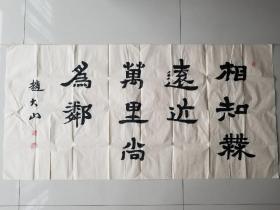 相知無
遠近
萬里尚
為鄰
趙大山